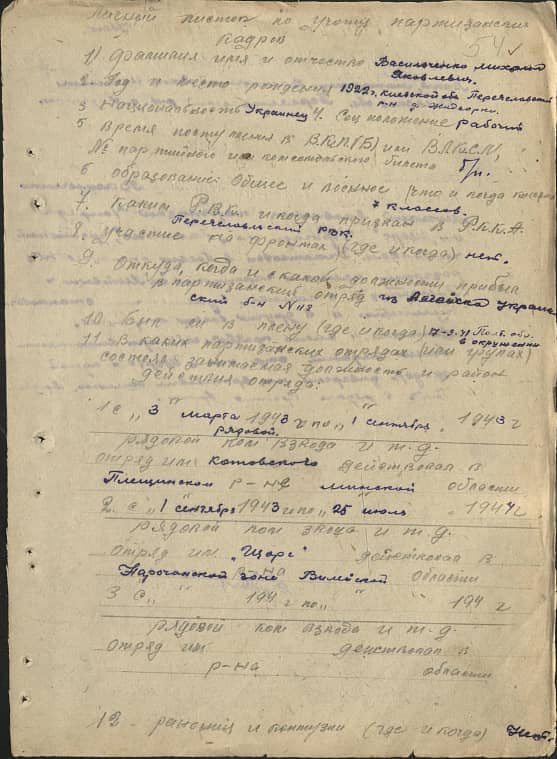 Личный листок по учоту партизанских
кадров
54
1) Фамилия имя и отчество Василоченко Михаил
Яковлевич.
2 Год и место рождения 1922г. киевской обл Переяславский
р-н д.
3 Национальность Украинец 4. Соц положение рабочий
5 Время поступления в В.К.П.(б) или В.Л.К.С.М.,
№ партийного или комсомольского билета б/п.
6 образование: Общее и военное (что и когда
7 классов.
7. Каким Р.В.К. и когда призван в Р.К.К.А.
Переяславский РВК.
8. Участие на фронтах (где и когда) нет.
9. Откуда, когда и с какой должности прибыл
в партизанский отряд из Логойска Украин
ский б-н №118
10. Был ли в плену (где и когда) 17-9-41 Полт. обл.
в окружении
11. В каких партизанских отрядах (или групах)
состоял занимаемая должность и район
действия отряда:
1 с „ 3 " марта 1943 г. по „ 1 сентября " 1943 г
рядовой.
рядовой ком взвода и т.д.
отряд им. Котовского действовал в
Плещинском р-не Минской области
2. с „ 1 " сентября 1943 г по „ 25 июль " 1944 г
рядовой ком взвода и т.д.
Отряд им. „Щорс" действовал в
р-на
Нарочанской зоне Вилейской области
3 С „ " 194 г по „ " 194 г
рядовой ком взвода и т.д.
отряд им действовал в
р-на области
12 - ранения и контузии (где и когда) Нет.